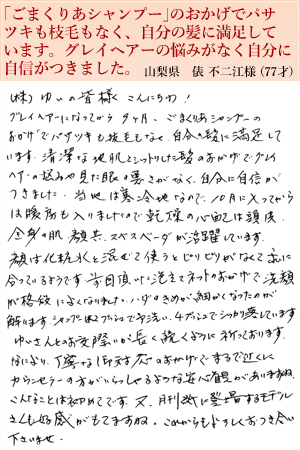 「ごまくりあシャンプー」のおかげでパサ
ツキも枝毛もなく、自分の髪に満足して
います。グレイヘアーの悩みがなく自分に
自信がつきました。 山梨県 俵 不二江様（77才）
(株)ゆいの皆様 こんにちわ！
グレイヘアーになってから 9ヶ月、ごまくりあシャンプーの
おかげでパサツキも枝毛もなく、自分の髪に満足して
います。清潔な地肌としっとりした髪のおかげでグレイ
ヘアーの悩みや見た眼の悪さがなく、自分に自信が
つきました。当地は寒冷地なので、10月に入ってから
は暖房も入りましたので乾燥の心配は頭皮、
全身の肌、顔共、スベスベーダが活躍しています。
顔は化粧水と混ぜて使うとピリピリがなくて
合っているようです。 泡立てネットのおかげで、洗顔
が格段によくなりました。ハダのきめが細かくなったのが
解ります。シャンプーは 
ゆいさんとのお交際いが長く続くように祈っております。
なにより、丁寧な 応のおかげでまるで近くに
カウンセラーの方がいらっしゃるような安心感がありますね。
こんなことは初めてです。又、月刊誌に登場するモデル
さんも好感がもてますね。これからもよろしくおつき合い
下さいませ。